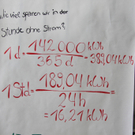 Wie viel sparen wir in der
Stunde ohne Strom?
1d = 142000 kWh / 365d = 389,04 kWh
1 Std = 389,04 kWh / 24h
= 16,21 kWh